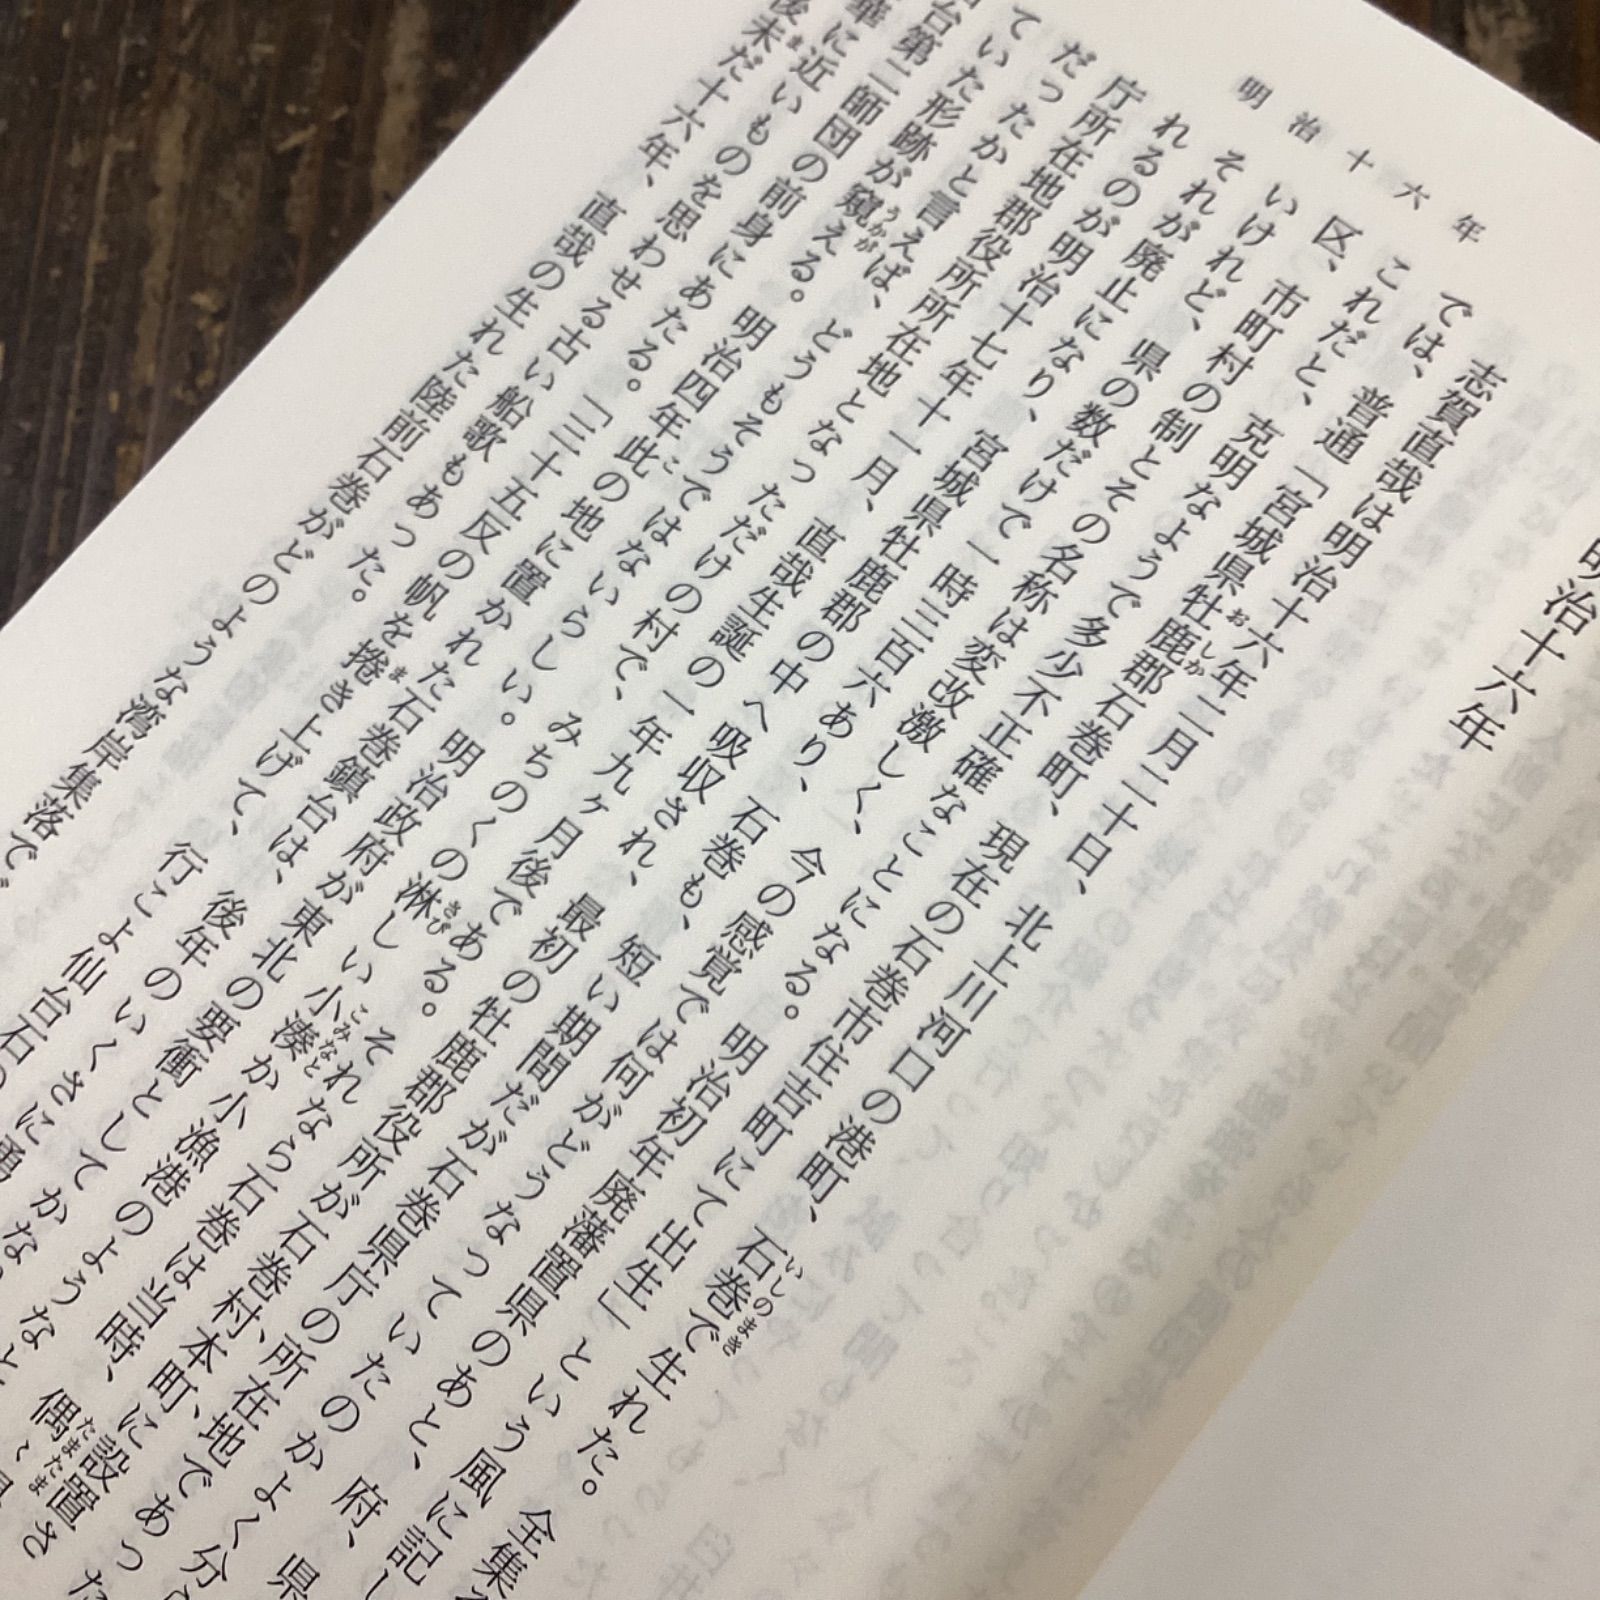 明治十六年
明治十六年
志賀直哉は明治十六年二月二十日、北上川河口の港町、石巻で生れた。全集
では、普通「宮城県牡鹿郡石巻町、現在の石巻市住吉町にて出生」という風に記し
これだと、克明なようで多少不正確なことになる。明治初年廃藩置県のあと、府、県
区、市町村の制とその名称は変改激しく、今の感覚では何がどうなっていたのかよく分
いけれど、県の数だけで一時三百六あり、石巻も、短い期間だが石巻県庁の所在地であった
それが廃止になり、宮城県牡鹿郡の中へ吸収され、最初の牡鹿郡役所が石巻村、本町に設置さ
れるのが明治十七年十一月、直哉生誕の一年九ヶ月後である。それなら石巻は当時、偶々
庁所在地郡役所所在地となっただけの村で、みちのくの淋しい小湊か小漁港のようなと
だったかと言えば、どうもそうではないらしい。明治政府が東北の要衝としてかな
ていた形跡が窺える。明治四年此の地に置かれた石巻鎮台は、後年のいくさに勇
台第二師団の前身にあたる。「三十五反の帆を捲き上げて、行こよ仙台石
華に近いものを思わせる古い船歌もあった。
後未だ十六年、直哉の生れた陸前石巻がどのような湾岸集落で